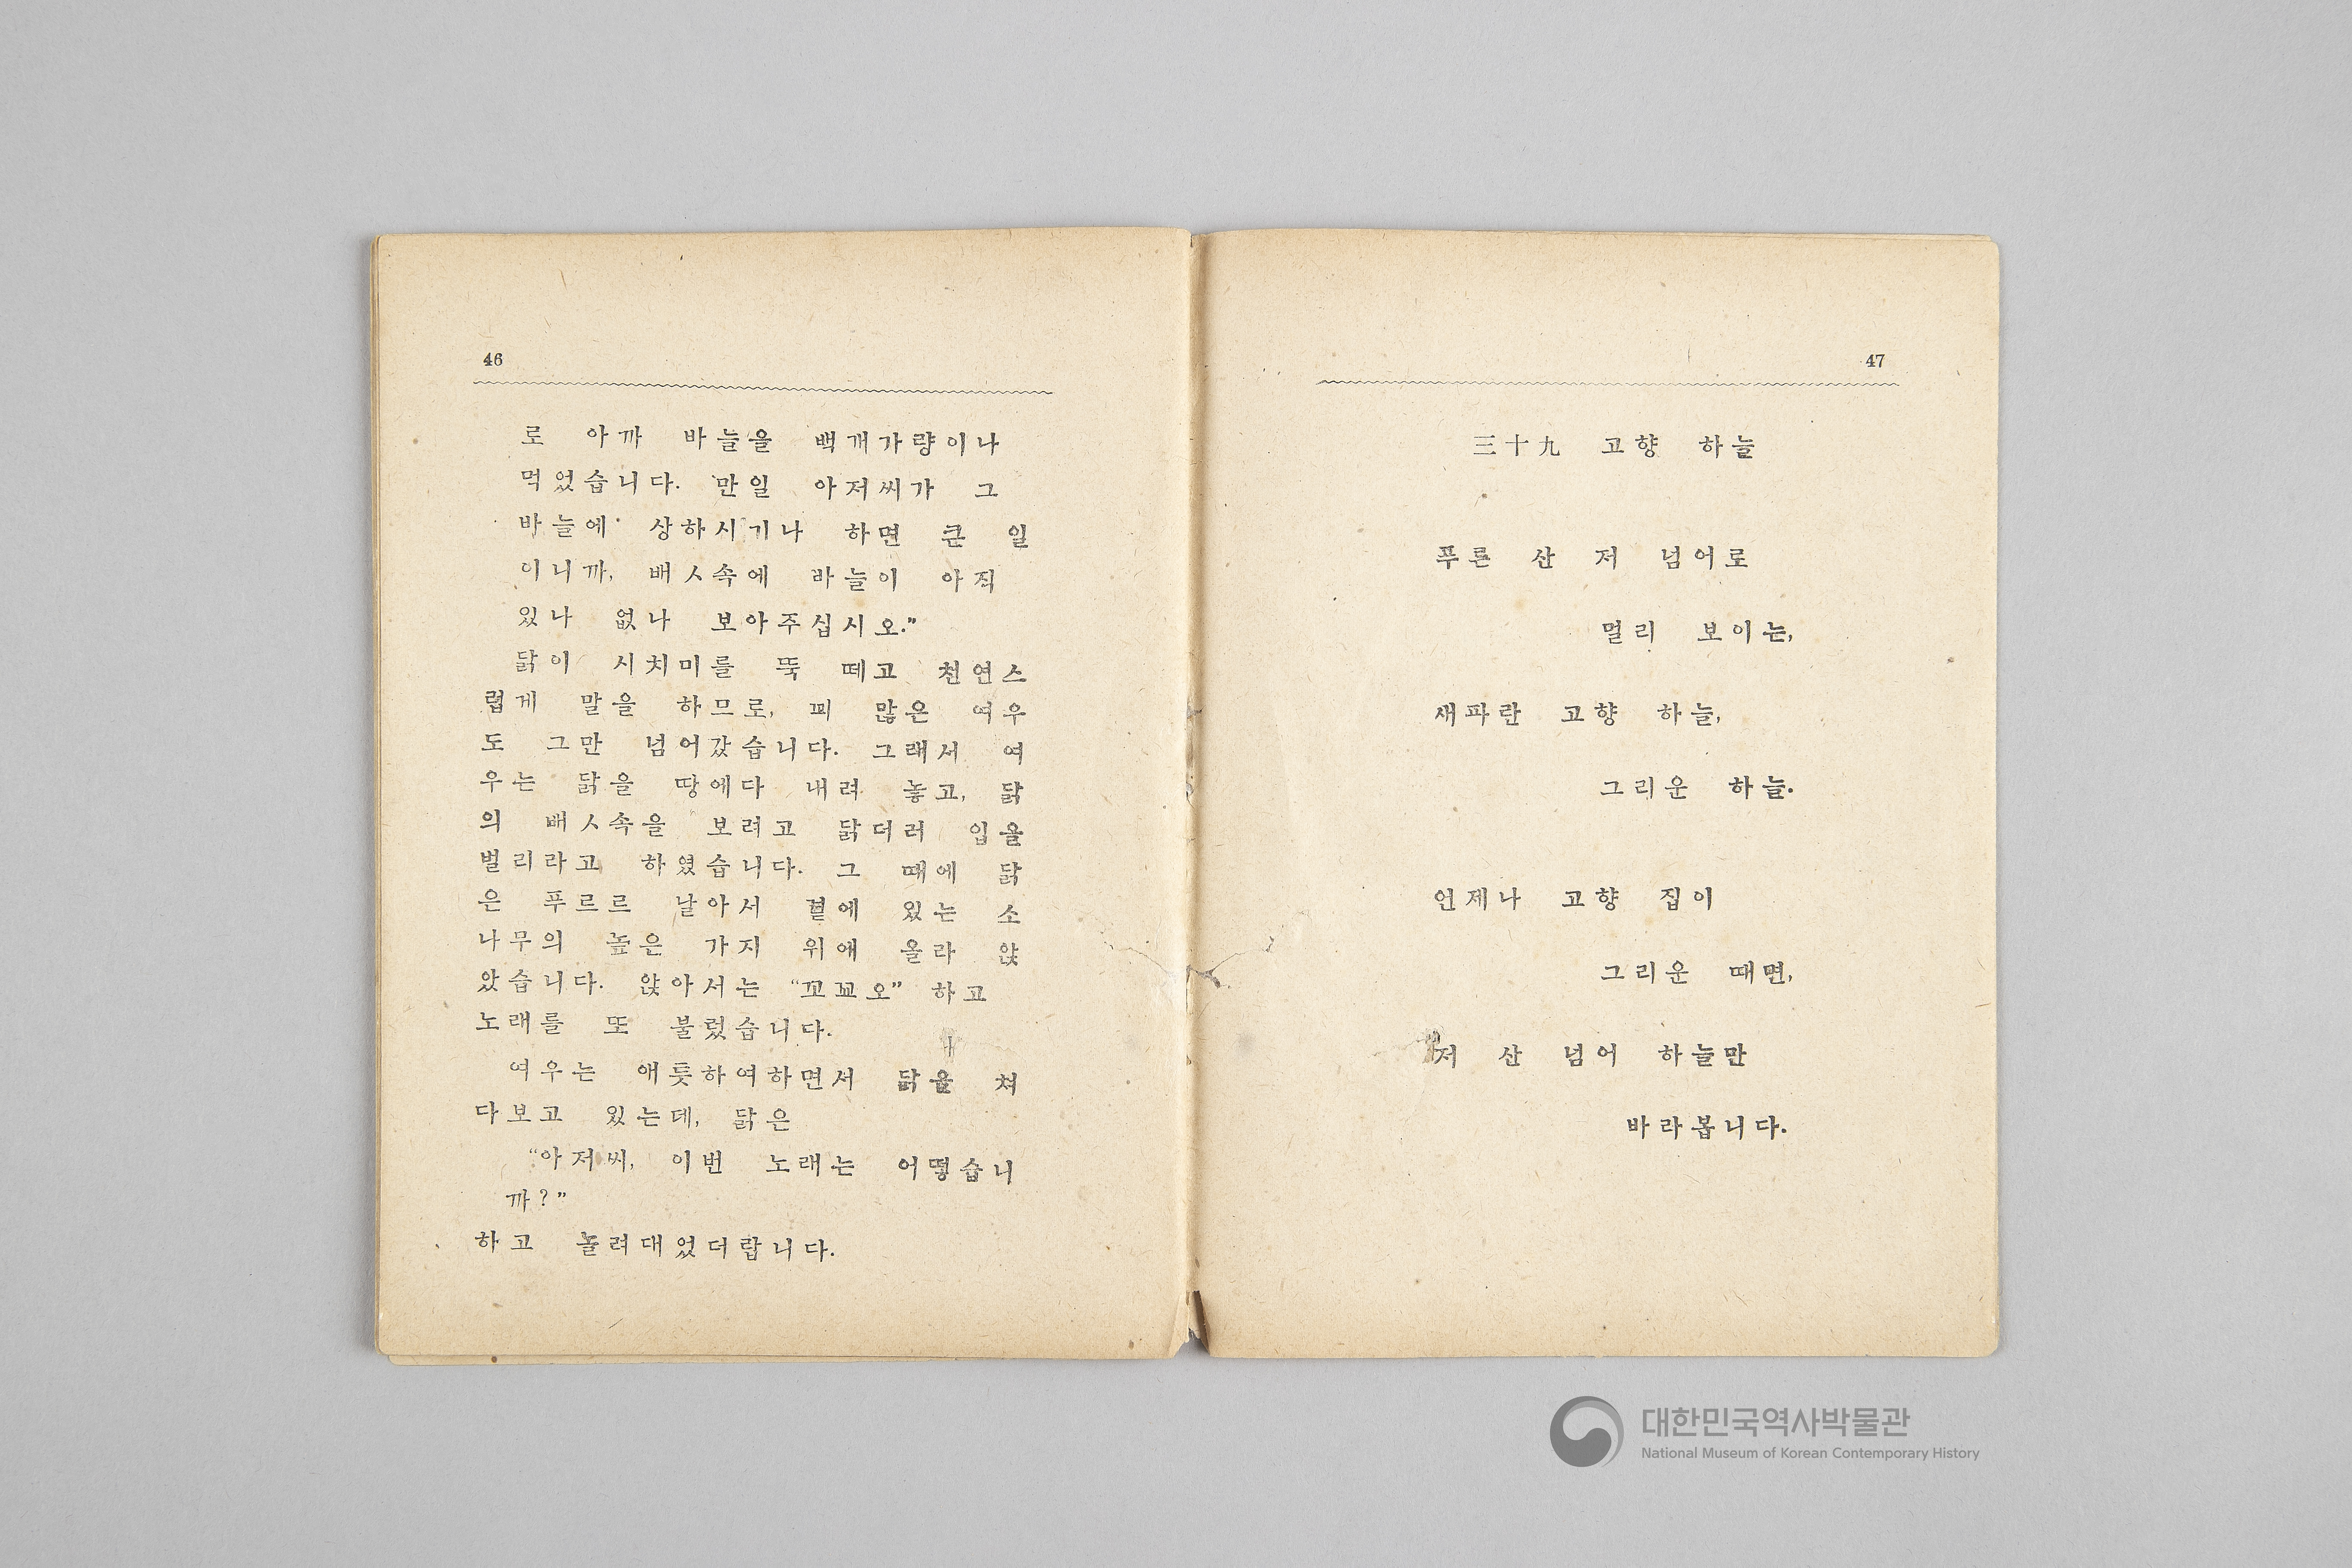 46
로 아까 바늘을 백개가량이나
먹었습니다. 만일 아저씨가 그
바늘에 상하시기나 하면 큰 일
이니까, 배ㅅ속에 바늘이 아직
있나 없나 보아주십시오."
닭이 시치미를 뚝 떼고 천연스
럽게 말을 하므로, 꾀 많은 여우
도 그만 넘어갔습니다. 그래서 여
우는 닭을 땅에다 내려 놓고, 닭
의 배ㅅ속을 보려고 닭더러 입을
벌리라고 하였습니다. 그 때에 닭
은 푸르르 날아서 곁에 있는 소
나무의 높은 가지 위에 올라 앉
았습니다. 앉아서는 "꼬꾜오" 하고
노래를 또 불렀습니다.
여우는 애틋하여하면서 닭을 쳐
다보고 있는데, 닭은
"아저씨, 이번 노래는 어떻습니
까?"
하고 놀려대었더랍니다.
47
三十九 고향 하늘
푸른 산 저 넘어로
멀리 보이는,
새파란 고향 하늘,
그리운 하늘.
언제나 고향 집이
그리운 때면,
저 산 넘어 하늘만
바라봅니다.
대한민국역사박물관
National Museum of Korean Contemporary History